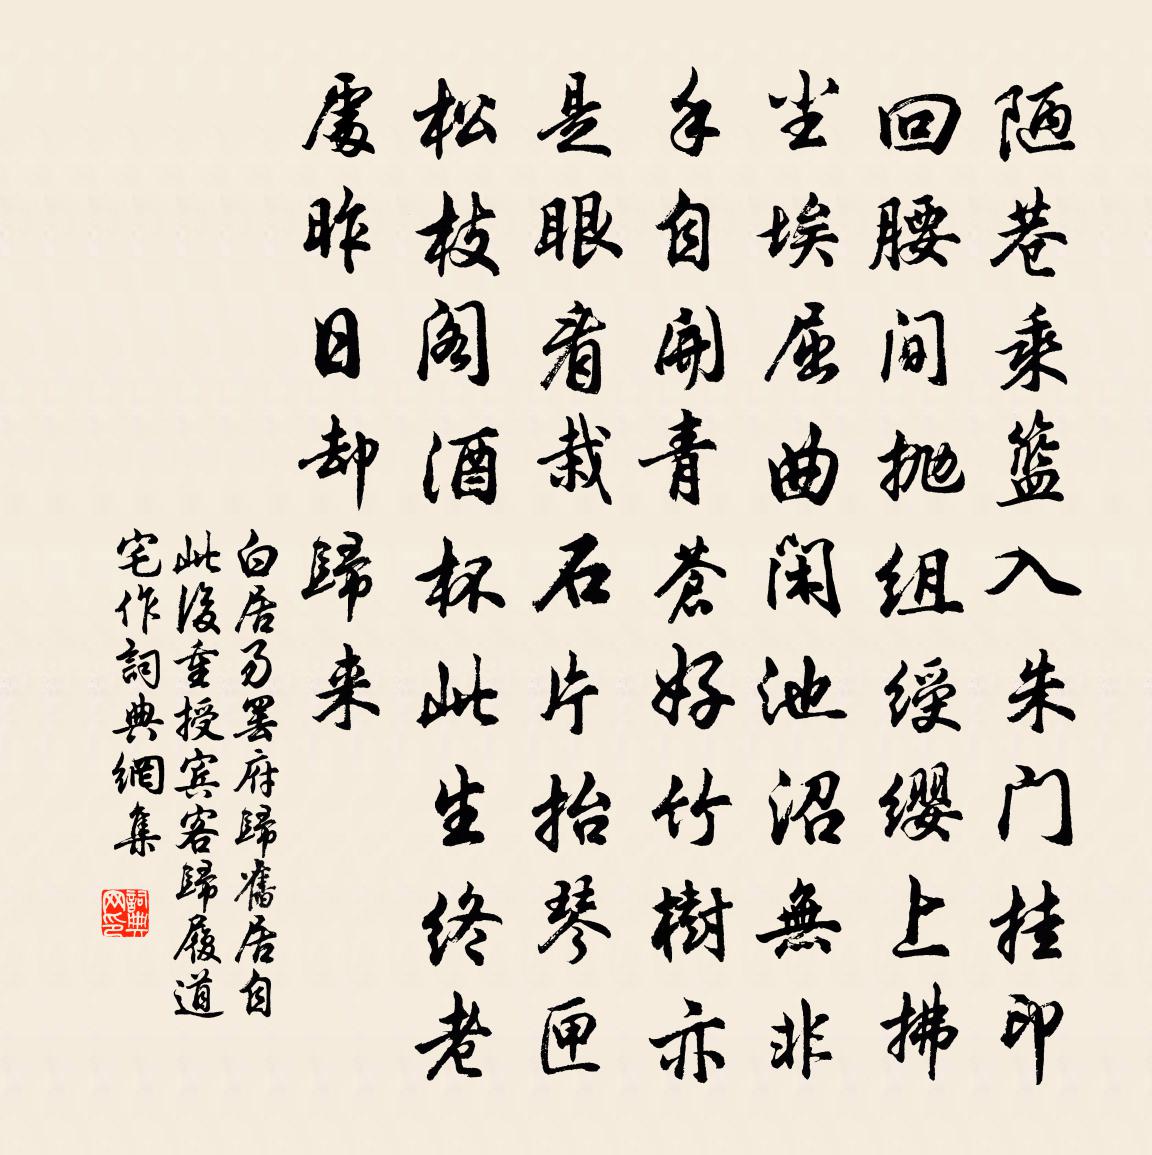 陋巷乘籃入朱门挂印
回腰间抛组绶缨上拂
尘埃屈曲闲池沼無非
手自開青蒼好竹樹亦
是眼看栽石片抬琴匣
松枝阁酒杯此生终老
處昨日却歸来
白居易罢府歸舊居自
此後重授宾客歸履道
宅作詞典網集
詞典网印